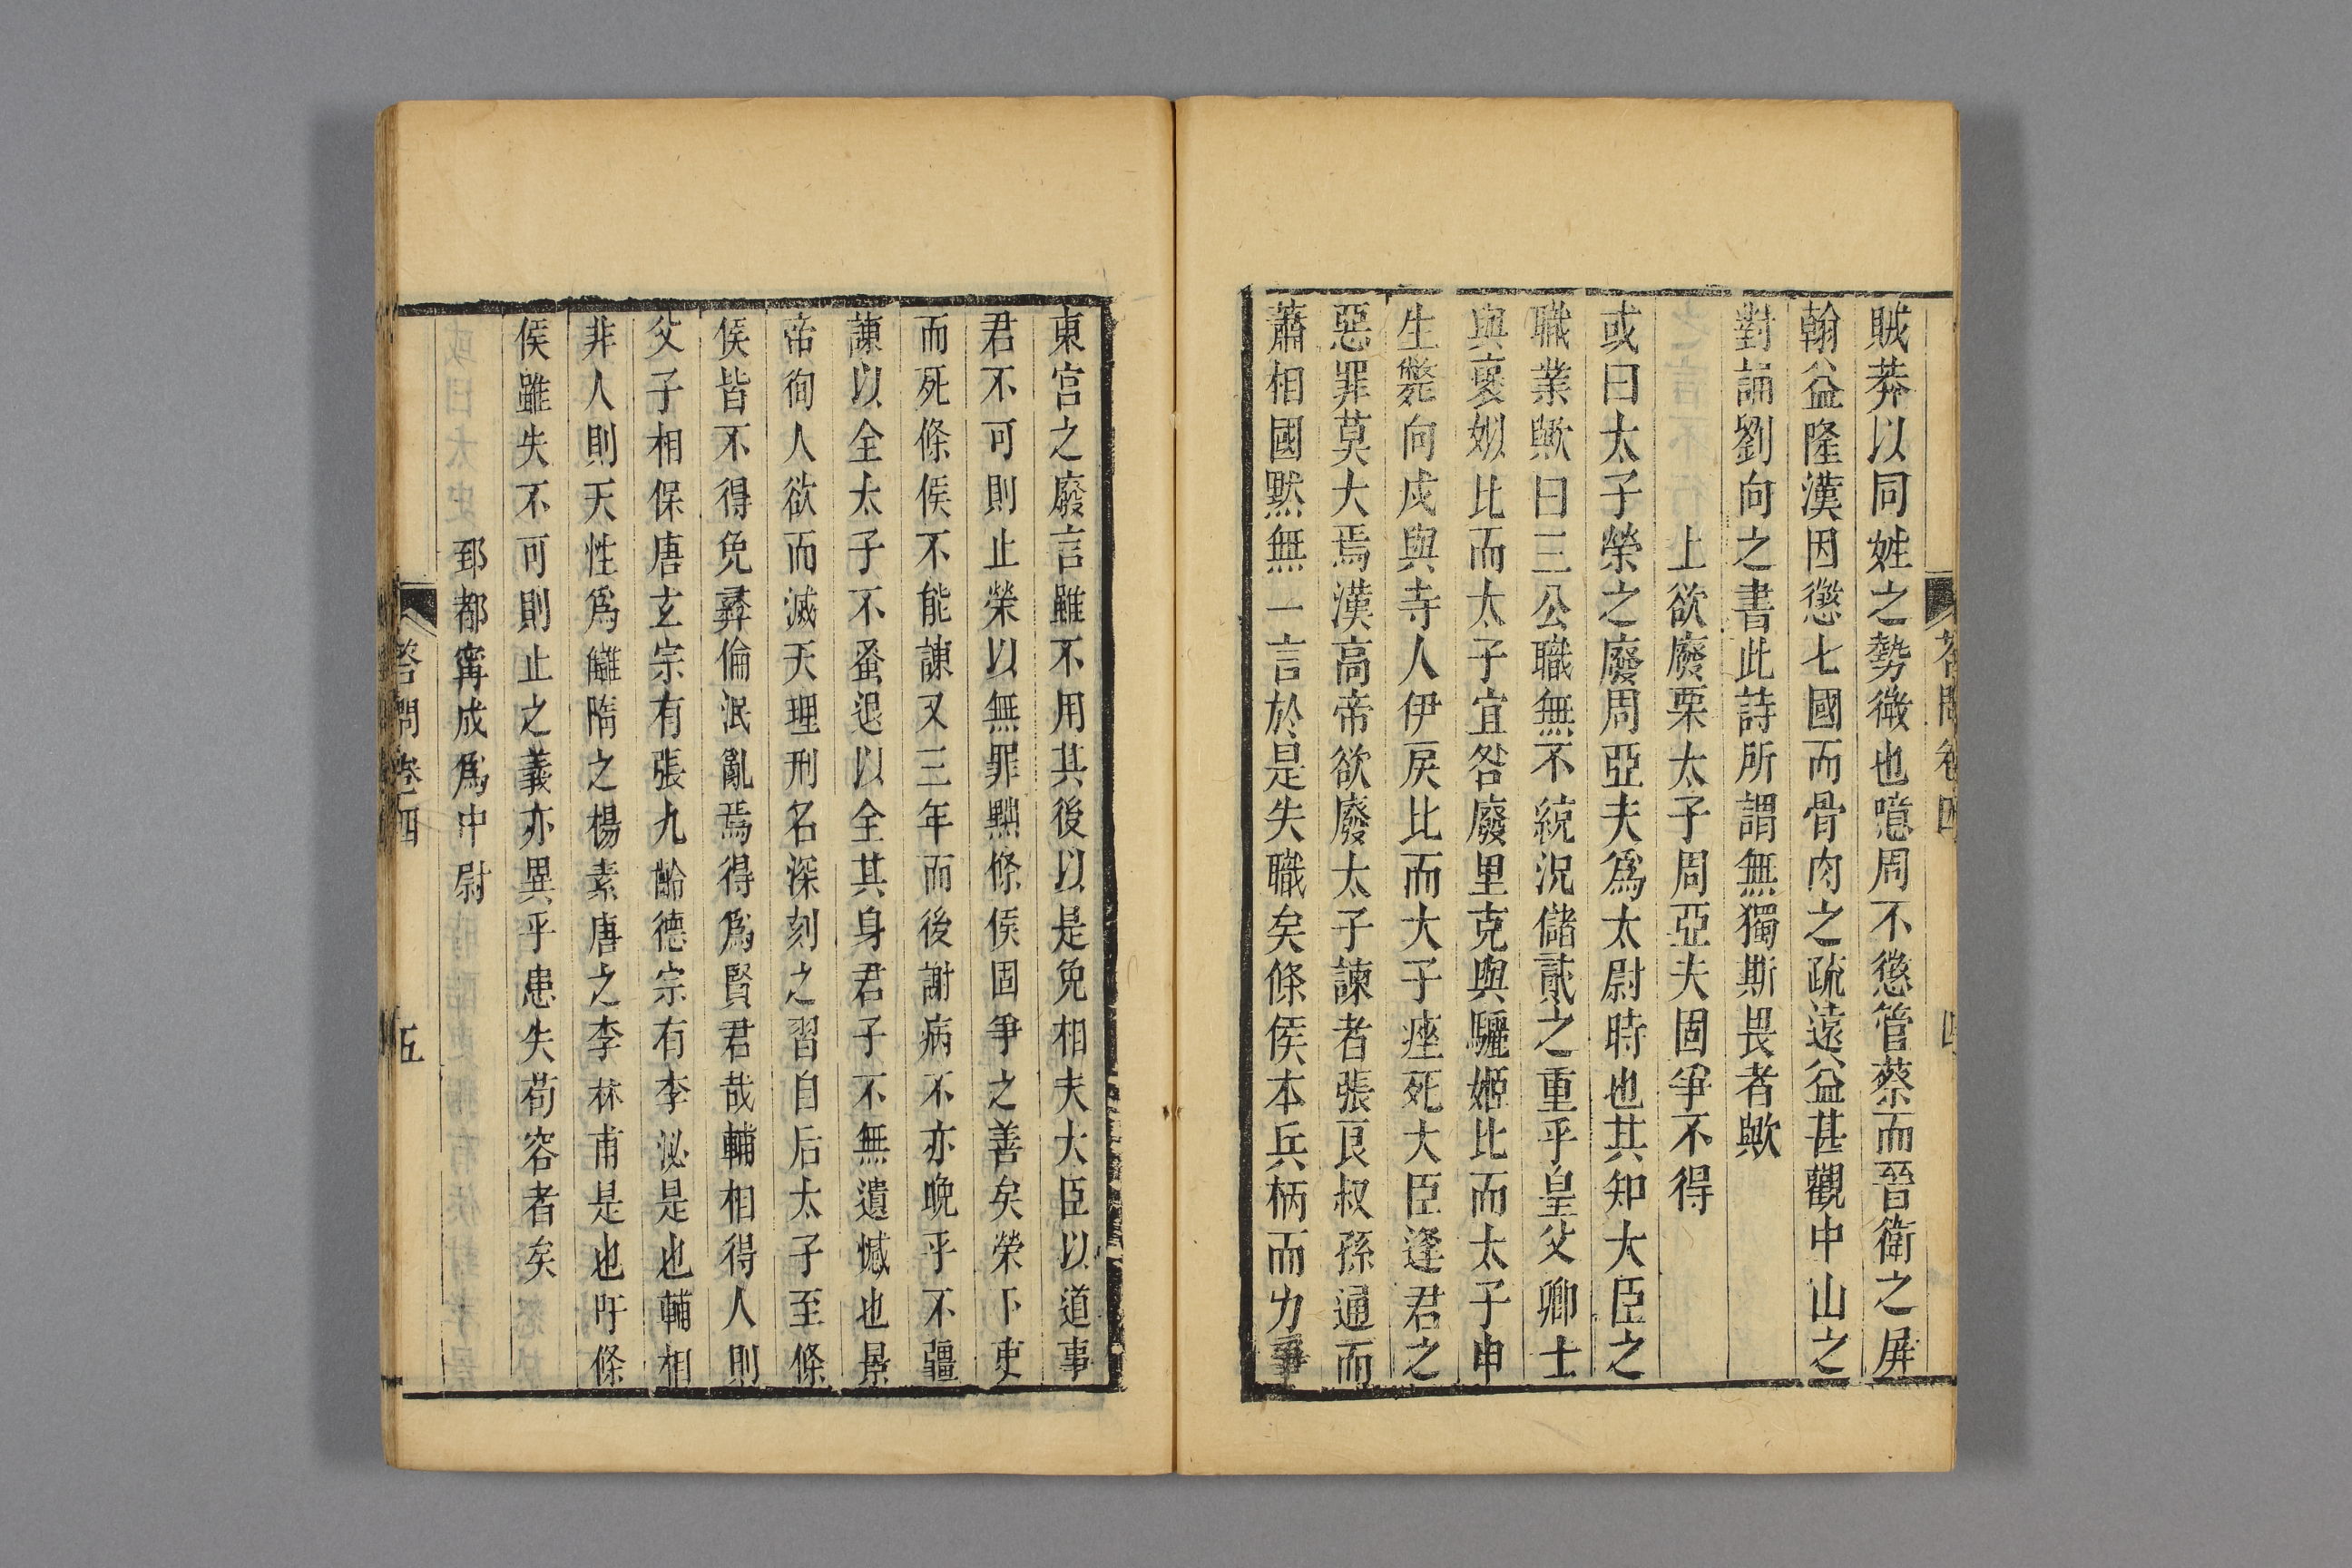 賊莽以同姓之勢微也噫周不懲管蔡而晉衛之屏
翰益隆漢因懲七國而骨肉之疏遠益甚觀中山之
對誦劉向之書此詩所謂無獨斯畏者歟
上欲廢栗太子周亞夫固爭不得
或曰太子榮之廢周亞夫爲太尉時也其知大臣之
職業歟曰三公職無不統況儲貳之重乎皇父卿士
與褒姒比而太子宜咎廢里克與驪姬比而太子申
生斃向戌與寺人伊戾比而大子痤死大臣逢君之
惡罪莫大焉漢高帝欲廢太子諫者張良叔孫通而
蕭相國默無一言於是失職矣條侯本兵柄而力爭
答問卷四
四
東宮之廢言雖不用其後以是免相夫大臣以道事
君不可則止榮以無罪黜條侯固爭之善矣榮下吏
而死條侯不能諫又三年而後謝病不亦晚乎不疆
諫以全太子不蚤退以全其身君子不無遺憾也景
帝徇人欲而滅天理刑名深刻之習自后太子至條
侯皆不得免彝倫泯亂焉得爲賢君哉輔相得人則
父子相保唐玄宗有張九齡德宗有李泌是也輔相
非人則天性爲讎隋之楊素唐之李林甫是也吁條
侯雖失不可則止之義亦異乎患失苟容者矣
郅都甯成爲中尉
答問卷四
五